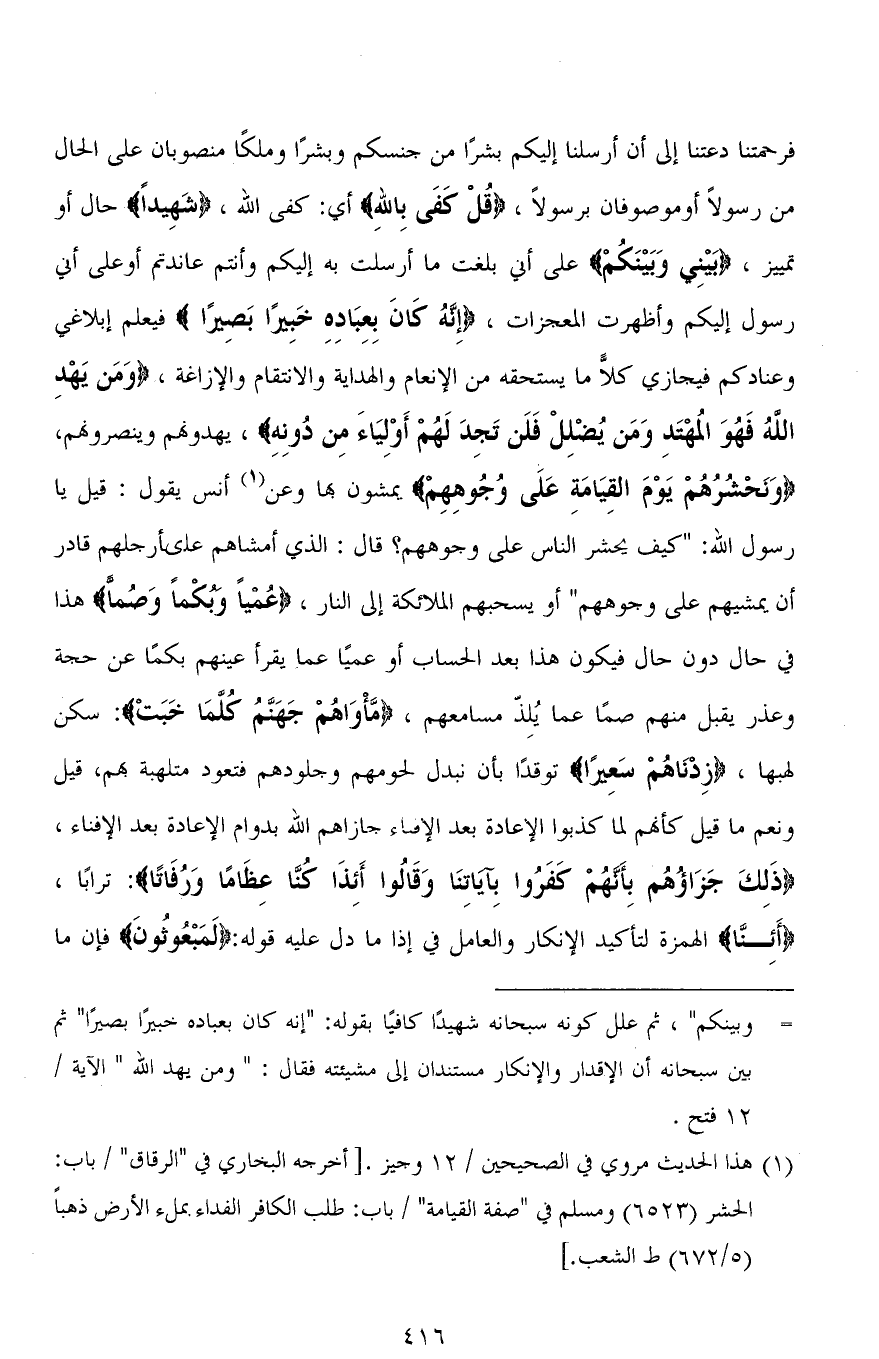 فرحمتنا دعتنا إلى أن أرسلنا إليكم بشرًا من جنسكم وبشرًا وملكًا منصوبان على الحال
من رسولاً أوموصوفان برسولاً ، ﴿قُلْ كَفَى بِاللهِ﴾ أي: كفى الله ، ﴿شَهِيداً﴾ حال أو
تمييز ، ﴿بَيْنِي وَبَيْنَكُمْ﴾ على أني بلغت ما أرسلت به إليكم وأنتم عاندتم أوعلى أني
رسول إليكم وأظهرت المعجزات ، ﴿إِنَّهُ كَانَ بِعِبَادِهِ خَبِيرًا بَصِيرًا ﴾ فيعلم إبلاغي
وعنادكم فيجازي كلاًّ ما يستحقه من الإنعام والهداية والانتقام والإزاغة ، ﴿وَمَن يَهْدِ
اللَّهُ فَهُوَ الْمُهْتَدِ وَمَن يُضْلِلْ فَلَن تَجِدَ لَهُمْ أَوْلِيَاءَ مِن دُونِهِ﴾ ، يهدونهم وينصرونهم،
﴿وَنَحْشُرُهُمْ يَوْمَ القِيَامَةِ عَلَى وُجُوهِهِمْ﴾ يمشون بها وعن(١) أنس يقول : قيل يا
رسول الله: "كيف يحشر الناس على وجوههم؟ قال : الذي أمشاهم على أرجلهم قادر
أن يمشيهم على وجوههم" أو يسحبهم الملائكة إلى النار ، ﴿عُمْياً وَبُكْماً وَصُماًّ﴾ هذا
في حال دون حال فيكون هذا بعد الحساب أو عميًا عما يقرأ عينهم بكمًا عن حجة
وعذر يقبل منهم صمًا عما يُلِذّ مسامعهم ، ﴿مَّأْوَاهُمْ جَهَنَّمُ كُلَّمَا خَبَتْ﴾: سكن
لهبها ، ﴿زِدْنَاهُمْ سَعِيرًا﴾ توقدًا بأن نبدل لحومهم وجلودهم فتعود متلهبة بهم، قيل
ونعم ما قيل كأنهم لما كذبوا الإعادة بعد الإفناء جازاهم الله بدوام الإعادة بعد الإفناء ،
﴿ذَلِكَ جَزَاؤُهُم بِأَنَّهُمْ كَفَرُوا بِآيَاتِنَا وَقَالُوا أَئِذَا كُنَّا عِظَامًا وَرُفَاتًا﴾: ترابًا ،
﴿أَئِـــنَّا﴾ الهمزة لتأكيد الإنكار والعامل في إذا ما دل عليه قوله:﴿لَمَبْعُوثُونَ﴾ فإن ما
= وبينكم" ، ثم علل كونه سبحانه شهيدًا كافيًا بقوله: "إنه كان بعباده خبيرًا بصيرًا" ثم
بين سبحانه أن الإقدار والإنكار مستندان إلى مشيئته فقال : " ومن يهد الله " الآية /
١٢ فتح .
(١) هذا الحديث مروي في الصحيحين / ١٢ وجيز .[ أخرجه البخاري في "الرقاق" / باب:
الحشر (٦٥٢٣) ومسلم في "صفة القيامة" / باب: طلب الكافر الفداء بملء الأرض ذهباً
(٦٧٢/٥) ط الشعب.]
٤١٦